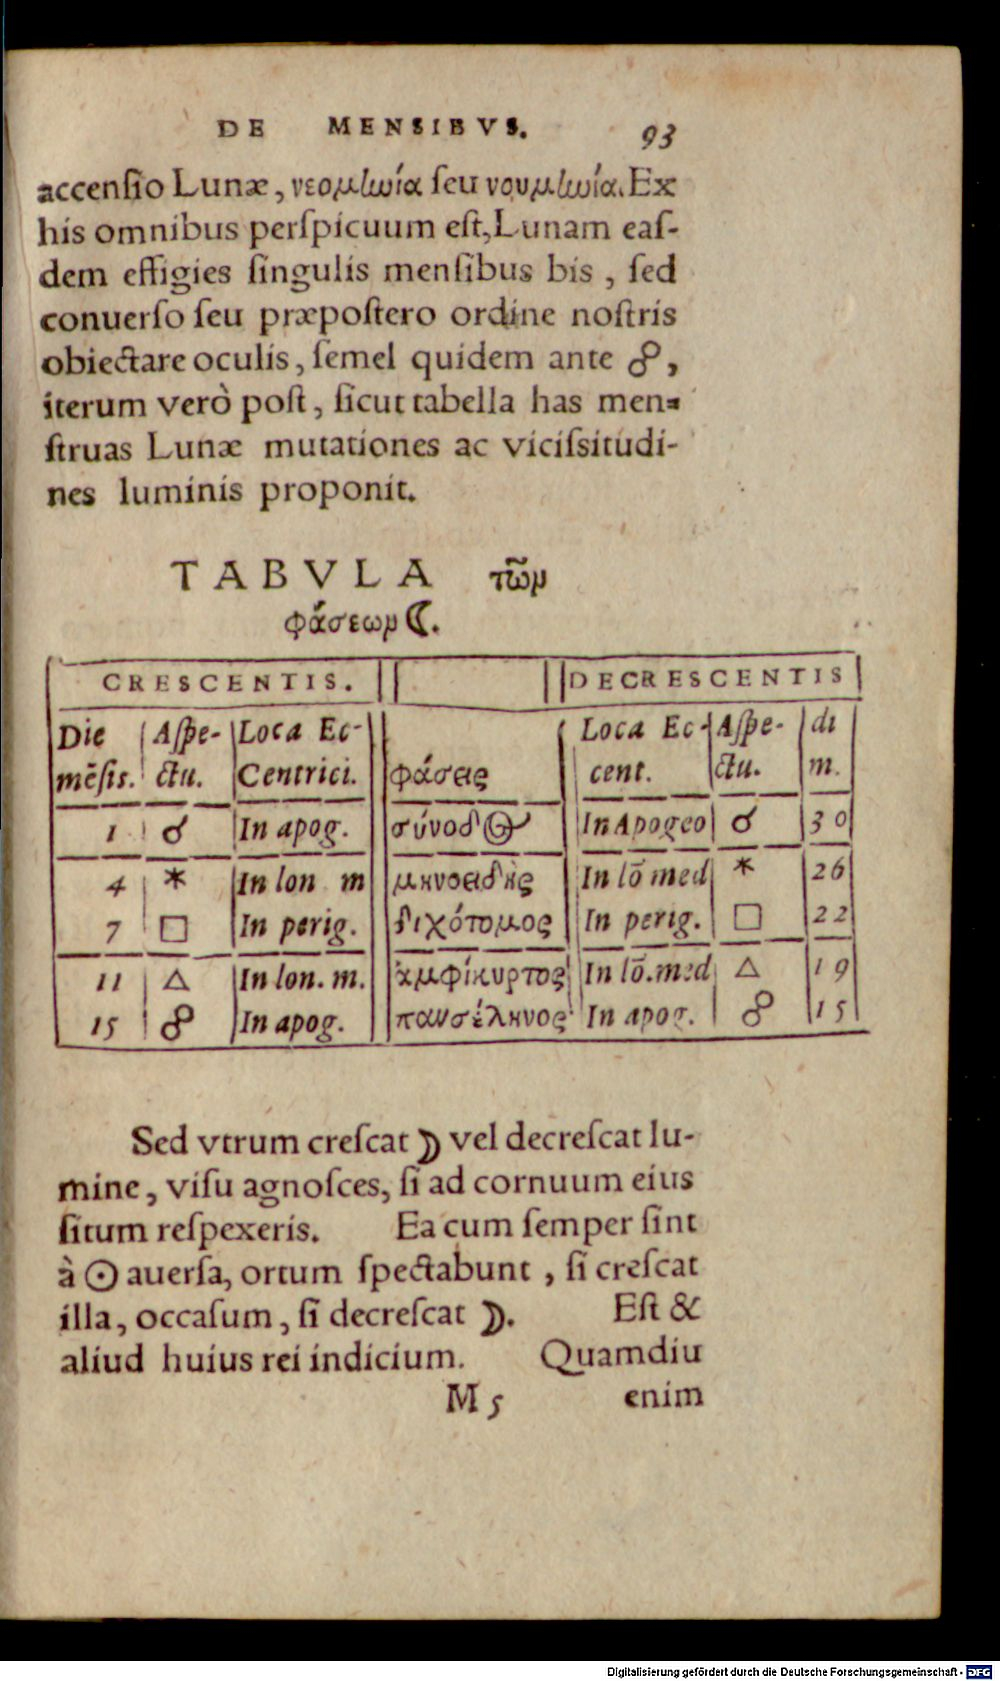 DE MENSIBVS. 93
accenſio Lunæ, νεομίωία ſeu νουμίωία. Ex
his omnibus perſpicuum eſt, Lunam eaſ-
dem effigies ſingulis menſibus bis , ſed
conuerſo ſeu præpoſtero ordine noſtris
obiectare oculis, ſemel quidem ante ☍,
iterum verò poſt, ſicut tabella has men=
ſtruas Lunæ mutationes ac viciſsitudi-
nes luminis proponit.
TABVLA τῶν
φάσεων ☾.
CRESCENTIS. DECRESCENTIS
Die Aſpe- Loca Ec- Loca Ec- Aſpe- di
mēſis. ctu. Centrici. φάσεις cent. ctu. m.
1 ☌ In apog. σύνοδ In Apogeo ☌ 30
4 * In lon m μηνοειδής In lō med * 26
7 □ In perig. διχότομος In perig. □ 22
11 △ In lon. m. ἀμφίκυρτος In lō. med △ 19
15 ☍ In apog. πανσέληνος In apog. ☍ 15
Sed vtrum creſcat ☽ vel decreſcat lu-
mine, viſu agnoſces, ſi ad cornuum eius
ſitum reſpexeris. Ea cum ſemper ſint
à ☉ auerſa, ortum ſpectabunt , ſi creſcat
illa, occaſum, ſi decreſcat ☽. Eſt &
aliud huius rei indicium. Quamdiu
M 5 enim
Digitalisierung gefördert durch die Deutsche Forschungsgemeinschaft - DFG